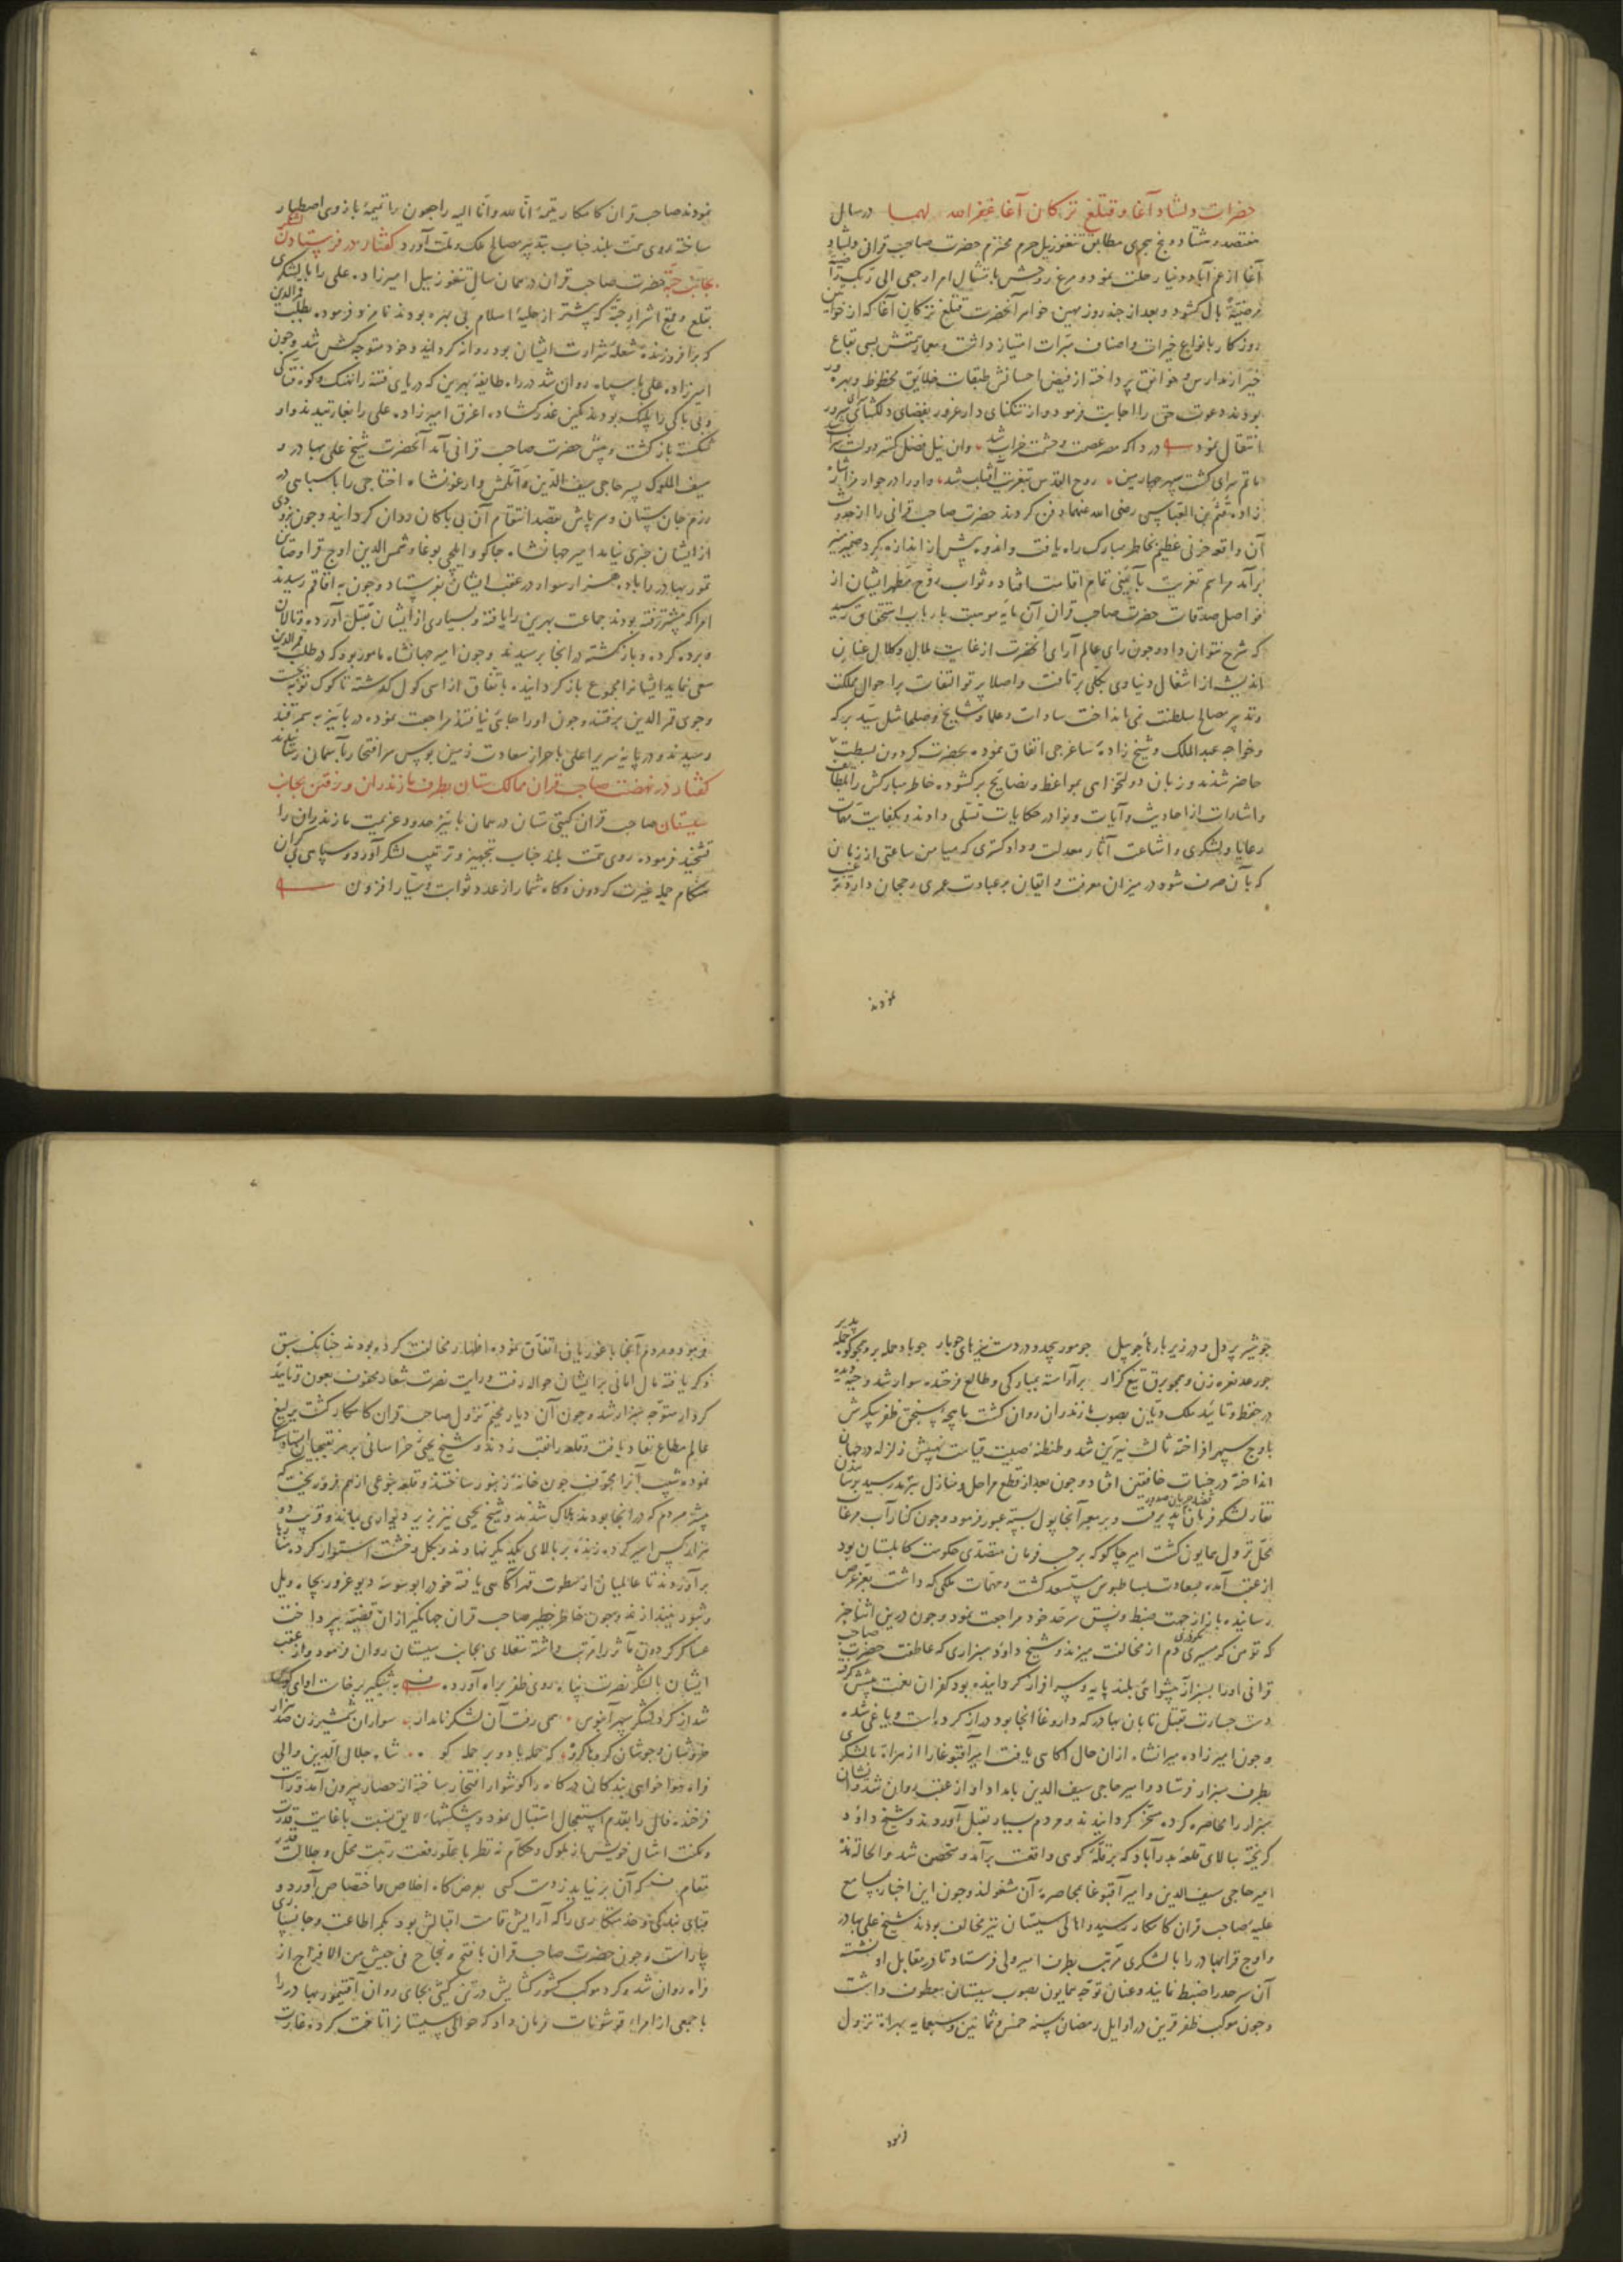 حضرات دلشاد آغا و قتلغ ترکان آغا غفر الله لهما در سال
هفتصد و هشتاد و پنج هجری مطابق تنغوزییل حرم محترم حضرت صاحب قرانی دلشاد
آغا از غم آباد دنیا رحلت نمود و مرغ روحش بامتثال امر ارجعی الی ربک راضیة
مرضیة بال گشود و بعد از چند روز مهین خواهر آنحضرت قتلغ ترکان آغا که از خواتین
روزگار بانواع خیرات و اصناف مبرات امتیاز داشت و معمار همتش بسی بقاع
خیر از مدارس و خوانق پرداخته از فیض احسانش طبقات خلایق محظوظ و بهره ور
بودند دعوت حق را اجابت فرمود و از تنکنای دار غرور بفضای دلکشای سرور
انتقال نمود دردا که مصر عصمت و حشمت خراب شد وان نیل فضل کستر دولت سراب
ماتم سرای کشت سپهر چهارمین روح القدس بتعزیت آفتاب شد و او را در جوار مزار شاه
زاده قثم بن العباس رضی الله عنهما دفن کردند حضرت صاحب قرانی را از حدوث
آن واقعه حزنی عظیم بخاطر مبارک راه یافت و اندوه بیش از اندازه کرد ضمیر منیر
برآمد مراسم تعزیت بآیینی تمام اقامت افتاد و ثواب روح مطهر ایشان از
فواضل صدقات حضرت صاحب قران آن مایه موهبت بارباب استحقاق رسید
که شرح نتوان داد و چون رای عالم آرای انحضرت از غایت ملال و کلال عنان
اندیشه از اشغال دنیاوی بکلی برتافت و اصلا پرتو التفات بر احوال مملکت
و تدبیر مصالح سلطنت نمی انداخت سادات و علما و مشایخ و صلحا مثل سید برکه
و خواجه عبدالملک و شیخ زاده ساغرجی اتفاق نموده بحضرت کردون بسطت
حاضر شدند و زبان دولتخواهی بمواعظ و نصایح برکشوده خاطر مبارکش را بلطایف
و اشارات از احادیث و آیات و نوادر حکایات تسلی دادند و بکفایت مهمات
رعایا و لشکری و اشاعت آثار معدلت و دادکستری که میامن ساعتی از زمان
که بآن صرف شود در میزان معرفت و ایقان بر عبادت عمری رجحان دارد ترغیب
نمودند
نمودند صاحب قران کامکار تیمه انا لله وانا الیه راجعون را تمیمه بازوی اصطبار
ساخته روی همت بلند جناب بتدبیر مصالح ملک و ملت آورد کفتار در فرستادن لشکر
بجانب جته حضرت صاحب قران در همان سال تنغوزییل امیرزاده علی را با لشکری
بقلع و قمع اشرار جته که پیشتر از حلیه اسلام بی بهره بودند نامزد فرمود و بطلب قمرالدین
که برافروزنده شعله شرارت ایشان بود روانه کردانید و خود متوجه کش شد و چون
امیرزاده علی با سپاه روان شد در راه طایفه بهرین که دریای فتنه را نهنک و کوه فتاکی
و بی باکی را پلنک بودند کمین غدر کشاده اغرق امیرزاده علی را بغارتیدند و او
شکسته بازکشت و پیش حضرت صاحب قرانی آمد آنحضرت شیخ علی بهادر و
سیف الملوک پسر حاجی سیف الدین و اتلمش و ارغونشاه اختاجی را با سپاهی در
رزم جان ستان و سرپاش بقصد انتقام آن بی باکان روان کردانید و چون بزودی
از ایشان خبری نیامد امیر جهانشاه جاکو و ایلچی بوغا و شمس الدین اوچ قرا و صاین
تمور بهادر را با ده هزار سوار در عقب ایشان بفرستاد و چون به اتاقم رسیدند
امرا که پیشتر رفته بودند جماعت بهرین را یافته و بسیاری از ایشان بقتل آورده و تالان
و برده کرده و بازکشته در انجا برسیدند و چون امیر جهانشاه مامور بود که در طلب قمرالدین
سعی نماید ایشانرا مجموع بازکردانیده باتفاق از ایسی کول کذشته تا کوک توبه بجست
وجوی قمرالدین برفتند و چون او را جایی نیافتند مراجعت نموده در پاییز به سمرقند
رسیدند و در پایه سریر اعلی باحراز سعادت زمین بوس سر افتخار بآسمان رسانیدند
کفتار در نهضت صاحب قران ممالک ستان بطرف مازندران و رفتن بجانب
سیستان صاحب قران کیتی ستان در همان پاییز حدود عزیمت مازندران را
تشحیذ فرموده روی همت بلند جناب بتجهیز و ترتیب لشکر آورد و سپاهی کران
هنکام حمله غیرت کردون و کاه شمار از عدد ثوابت و سیار افزون
چو شیر پر دل و در زیر بارها چو پیل چو مور بیحد و در دست نیزهای چو مار چو باد حمله بر و همچو کوه حمله پذیر
چو رعد نعره زن و همچو برق تیغ کزار برآراسته بمبارکی و طالع فرخنده سوار شد و جبه پوشیده
در حفظ و تایید ملک دیان بصوب مازندران روان کشت ماهچه سنجق ظفر پیکرش
باوج سپهر افراخته ثالث نیرین شد و طنطنه صیت قیامت نهیبش زلزله در جهان
انداخته در جنبات خافقین افتاد و چون بعد از قطع مراحل و منازل بترمذ رسید بر سان
نفاذ لشکر قضا جریان صدور یافت و بر معبر آنجا پول بسته عبور فرمود و چون کنار آب مرغاب
محل نزول همایون کشت امیر چاکو که بر حسب فرمان متصدی حکومت کابلستان بود
از عقب آمده بسعادت بساطبوس مستسعد کشت و مهمات ملکی که داشت بعز عرض
رسانیده باز از جهت ضبط و نسق سرحد خود مراجعت نمود و چون درین اثنا خبر
که تومن نکودری کرمسیری دم از مخالفت میزند و شیخ داود سبزواری که عاطفت حضرت صاحب
قرانی او را بسبزوار پیشوایی بلند پایه و سرافراز کردانیده بود کفران نعمت پیش کرفته
دست جسارت بقتل تابان بهادر که داروغا انجا بود دراز کرده است و یاغی شده
و چون امیرزاده میرانشاه ازان حال آکاهی یافت امیر آقبوغا را از هراة با لشکری
بطرف سبزوار فرستاد و امیر حاجی سیف الدین بامداد او از عقب روان شد
سبزوار را محاصره کرده مسخر کردانیدند و مردم بسیار بقتل آوردند و شیخ داود
کریخته ببالای قلعه بدرآباد که بر قله کوهی واقعست برآمد و متحصن شد و الحاله هذه
امیر حاجی سیف الدین و امیر آقبوغا بمحاصره آن مشغولند و چون این اخبار بمسامع
علیه صاحب قران کامکار رسید و اهالی سیستان نیز مخالف بودند شیخ علی بهادر
و اوچ قرا بهادر را با لشکری مرتب بطرف امیر ولی فرستاد تا در مقابل او نشسته
آن سرحد را ضبط نمایند و عنان توجه همایون بصوب سیستان معطوف داشت
و چون موکب ظفر قرین در اوایل رمضان سنه خمس و ثمانین و سبعمایه بهراة نزول
فرمود
فرمود و مردم آنجا با غوریان اتفاق نموده اظهار مخالفت کرده بودند چنانک سبق
ذکر یافته مال امانی بر ایشان حواله رفت و رایت نصرت شعار محفوف بعون و تایید
کردکار متوجه سبزوار شد و چون آن دیار مخیم نزول صاحب قران کامکار کشت یرلیغ
عالم مطاع نفاذ یافت و قلعه را نقب زدند و شیخ یحیی خراسانی بر سر نقبچیان ایستادکی
نموده شیب آنرا مجوف چون خانه زنبور ساختند و قلعه بنوعی از هم فرو ریخت که
بیشتر مردم که در انجا بودند هلاک شدند و شیخ یحیی نیز بزیر دیواری بماند و قرب دو
هزار کس اسیر کرده زنده بر بالای یکدیکر نهادند و بکل و خشت استوار کرده منارها
برآوردند تا عالمیان از سطوت قهر آکاهی یافته خود را بوسوسه دیو غرور بچاه ویل
و ثبور نیندازند و چون خاطر خطیر صاحب قران جهانکیر ازان قضیه بپرداخت
عساکر کردون مآثر را مرتب داشته منقلای بجانب سیستان روان فرمود و از عقب
ایشان با لشکر نصرت پناه روی ظفر براه آورد به شبکیر برخاست اوای کوس
شد از کرد لشکر سپهر آبنوس همی رفت آن لشکر نامدار سواران شمشیرزن صد هزار
خروشان و جوشان کروها کروه که حمله باد و بر حمله کوه شاه جلال الدین والی
فراه هوا خواهی بندکان درکاه را کوشوار افتخار ساخته از حصار بیرون آمد و رایت
فرخنده فال را بقدم استعجال استقبال نمود و پیشکشها لایق نسبت با غایت قدرت
و مکنت امثال خویش از ملوک و حکام نه نظر با علو رفعت رتبت محل و جلالت قدر
مقام که آن بر نیاید ز دست کسی بعرض کاه اخلاص و اختصاص آورد و
قبای بندکی و خدمتکاری را که آرایش قامت اقبالش بود بکمر اطاعت و جانسپاری
بیاراست و چون حضرت صاحب قران با فتح و نجاح فی جیش من الافراج از
فراه روان شد و کرد موکب کشور کشایش در تن کیتی بجای روان آقتیمور بهادر را
با جمعی از امراء قوشونات فرمان داد که حوالی سیستانرا تاخت کرده غارت